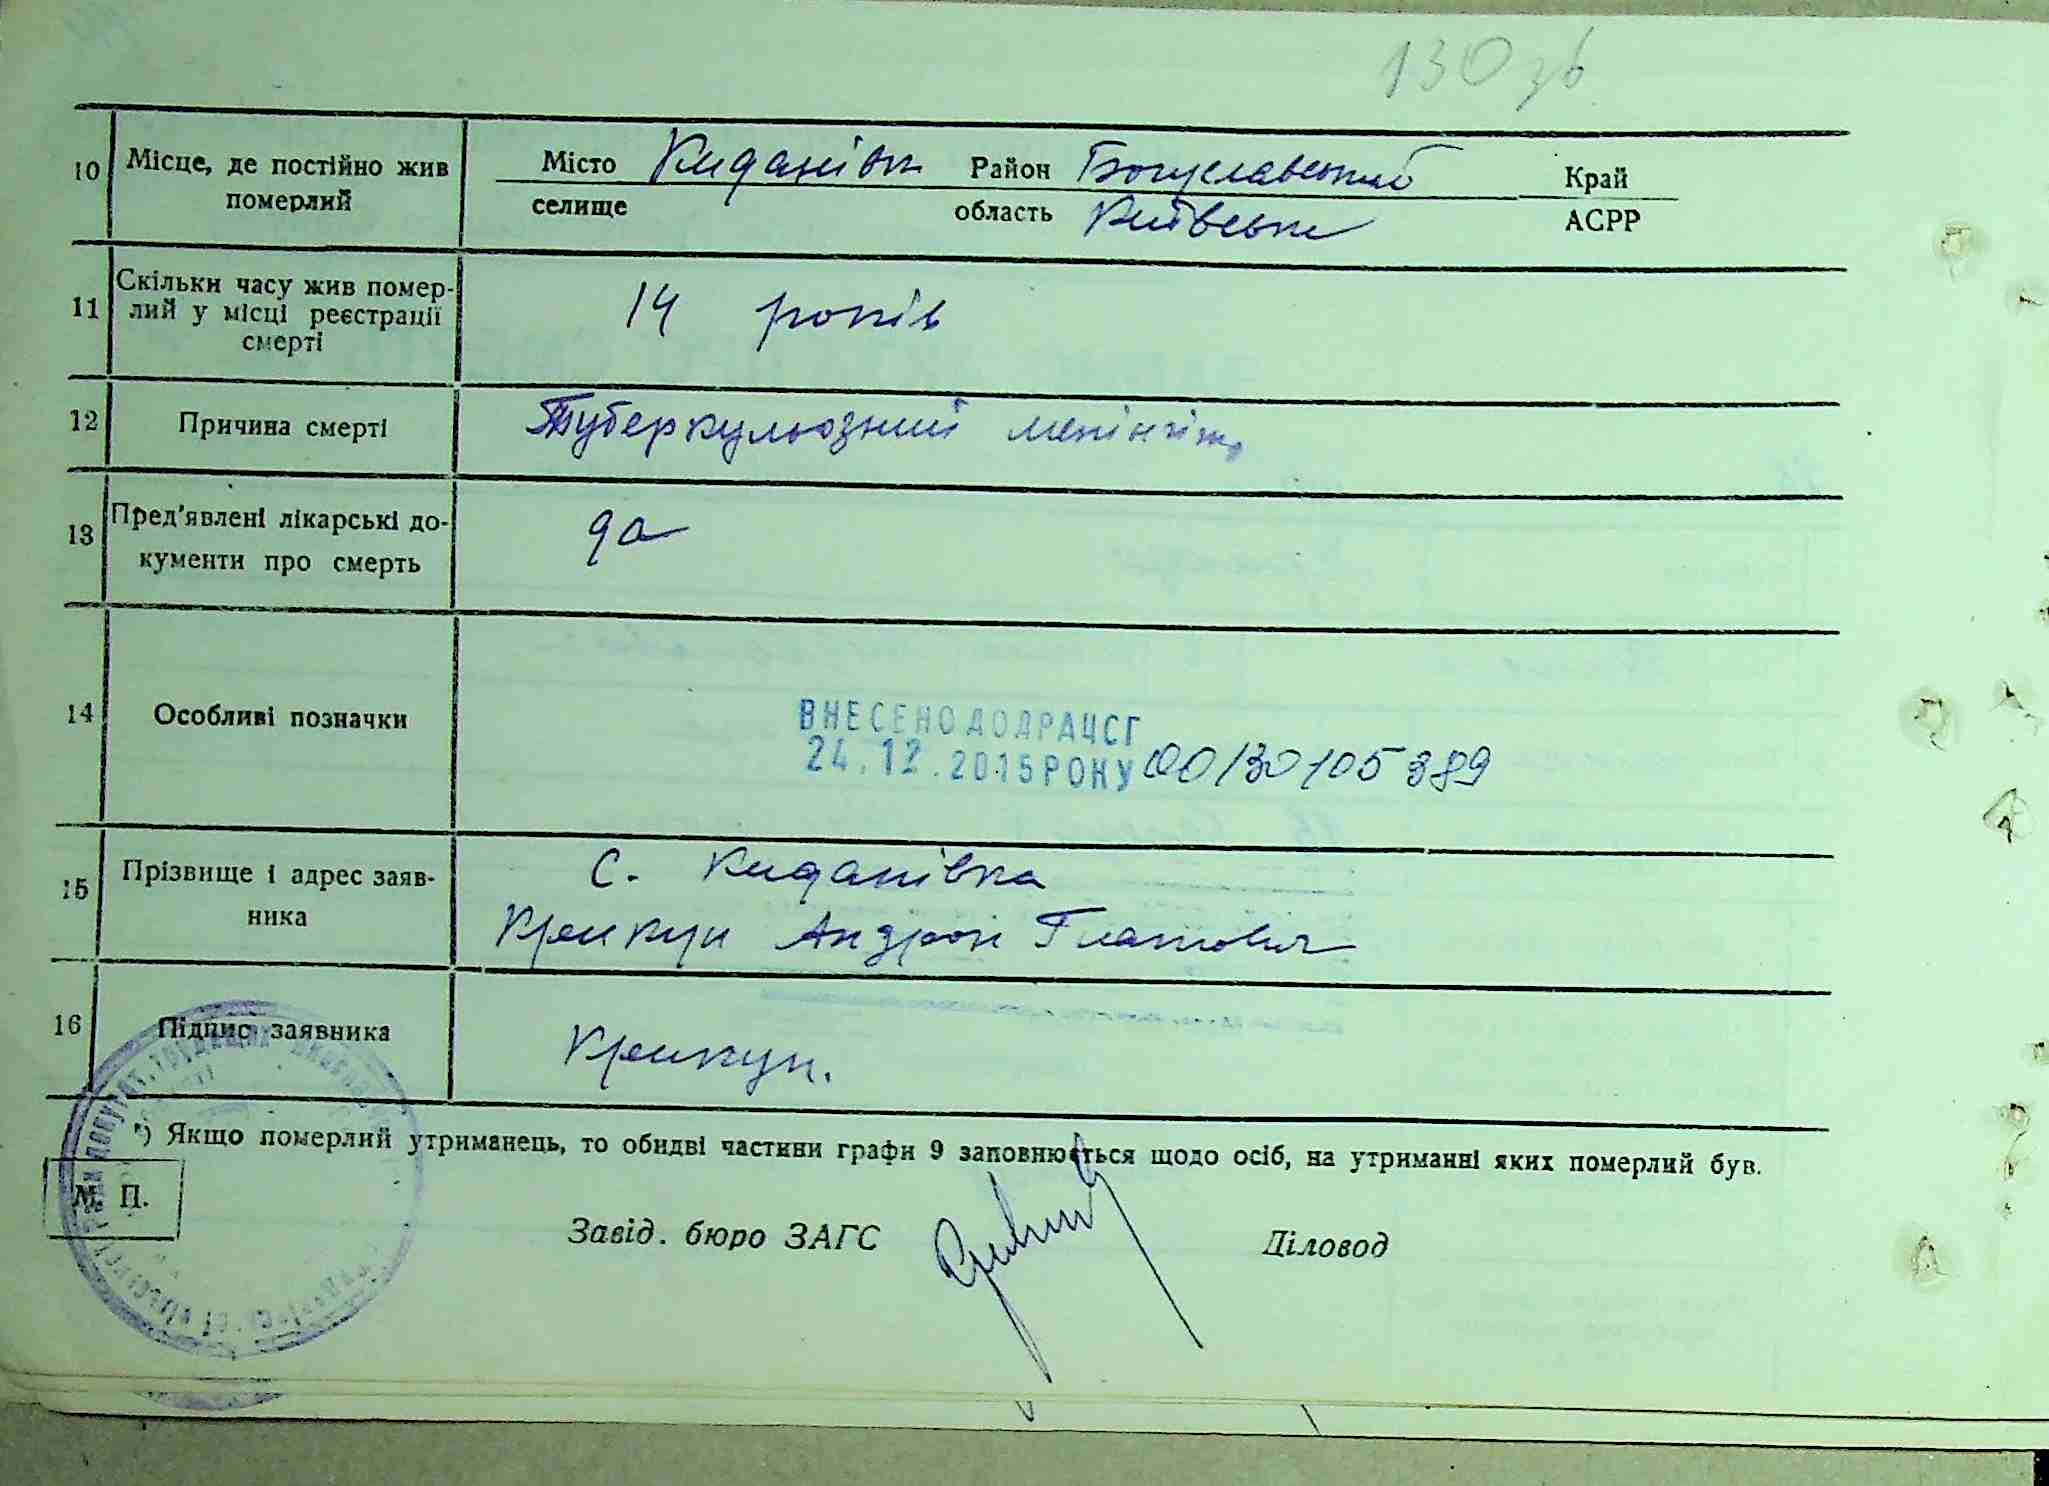 130 зв
10 Місце, де постійно жив померлий
Місто Киданівк Район Богуславський Край
селище область Київськ АСРР
11 Скільки часу жив помер-
лий у місці реєстрації
смерті
14 років
12 Причина смерті Туберкульозний менінгіт
13 Пред'явлені лікарські до-
кументи про смерть
да
14 Особливі позначки
ВНЕСЕНО ДО ДРАЦСГ
24.12.2015 РОКУ 00130105389
15 Прізвище і адрес заяв-
ника
С. Киданівка
Крикун Андрон Платович
16 Підпис заявника Крикун.
*) Якщо померлий утриманець, то обидві частини графи 9 заповнюється щодо осіб, на утриманні яких померлий був.
М. П.
Завід. бюро ЗАГС Діловод